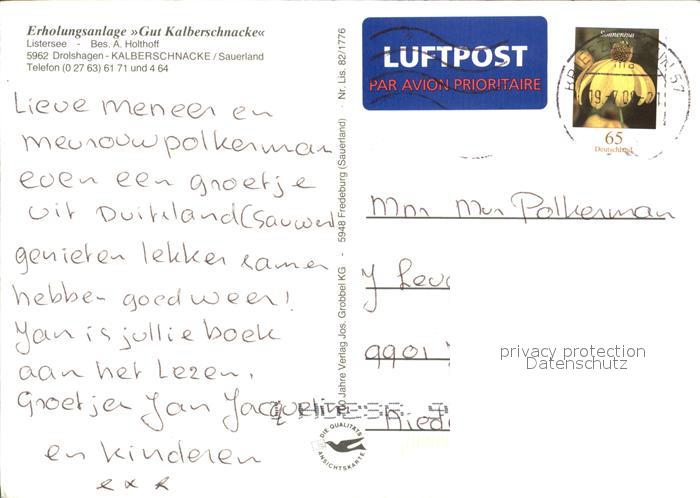 Erholungsanlage »Gut Kalberschnacke«
Listersee - Bes. A. Holthoff
5962 Drolshagen - KALBERSCHNACKE / Sauerland
Telefon (0 27 63) 61 71 und 4 64
Lieve meneer en
mevrouw polkerman
even een groetje
uit Duitsland (Sauwerl
genieten lekker samen
hebben goed weer!
Jan is jullie boek
aan het Lezen.
Groetjes Jan Jacqueline
en kinderen
x x x
Jahre Verlag Jos. Grobbel KG - 5948 Fredeburg (Sauerland) - Nr. Lis. 82/1776
DIE QUALITÄTS
ANSICHTSKARTE
LUFTPOST
PAR AVION PRIORITAIRE
Sonnenhut
65
Deutschland
BRIE 57
Polkerman
9901
privacy protection
Datenschutz